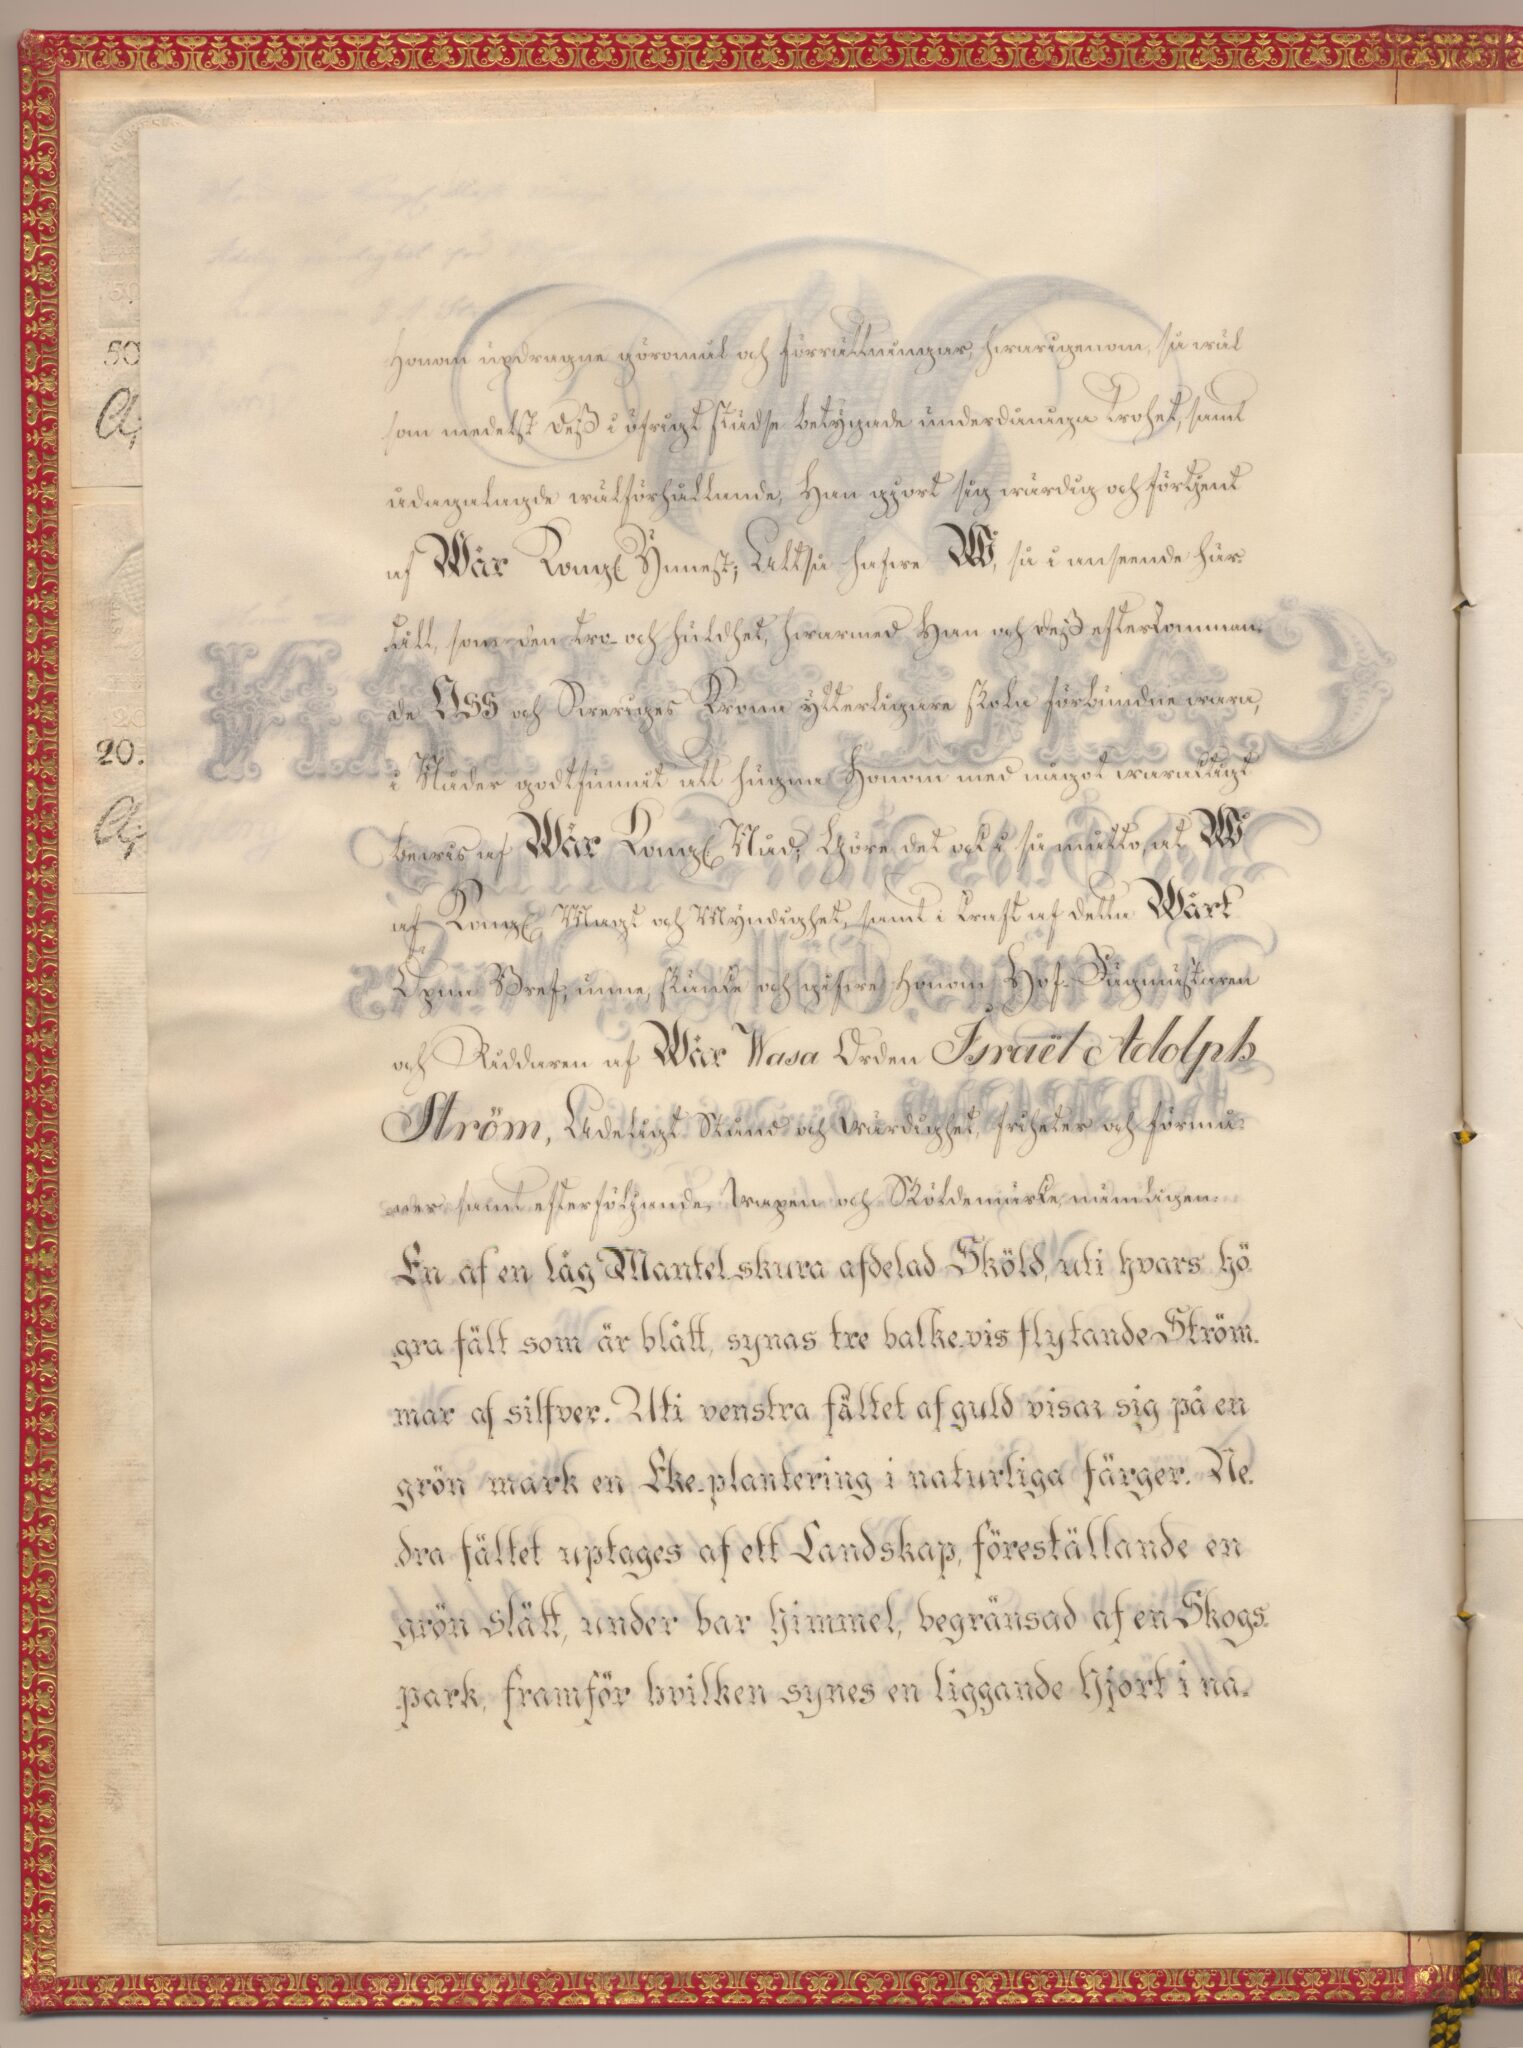 Honom updragne göromål och förrättningar, hwarigenom, så wäl
som medelst deß i öfrigt städse betygade underdåniga trohet, samt
ådagalagde wälförhållande, Han gjort sig wärdig och förtjent
af Wår Kongl Ynnest; Alltså hafwe Wi, så i anseende här-
till, som den tro- och huldhet, hwarmed Han och deß efterkomman-
de Oss och Sweriges Krona ytterligare skola förbundne wara,
i Nåder godtfunnit att hugna Honom med något waraktigt
bewis af Wår Kongl Nåd; Göre det ock i så måtto, at Wi
af Kongl Magt och Myndighet, samt i kraft af detta Wårt
Öpna Bref, unne, skänke och gifwe Honom, Hof-Jägmästaren
och Riddaren af Wår Wasa Orden Israël Adolph
Ström, Adeligt Stånd och Wärdighet, friheter och förmå-
ner samt efterföljande Wapen och Sköldemärke, nämligen:
En af en låg Mantelskura afdelad Sköld, uti hvars hö-
gra fält som är blått, synas tre balkevis flytande Ström-
mar af silfver. Uti venstra fältet af guld visar sig på en
grön mark en Eke-plantering i naturliga färger. Ne-
dra fältet uptages af ett Landskap, föreställande en
grön slätt, under bar himmel, begränsad af en Skogs-
park, framför hvilken synes en liggande Hjort i na-
50
20.